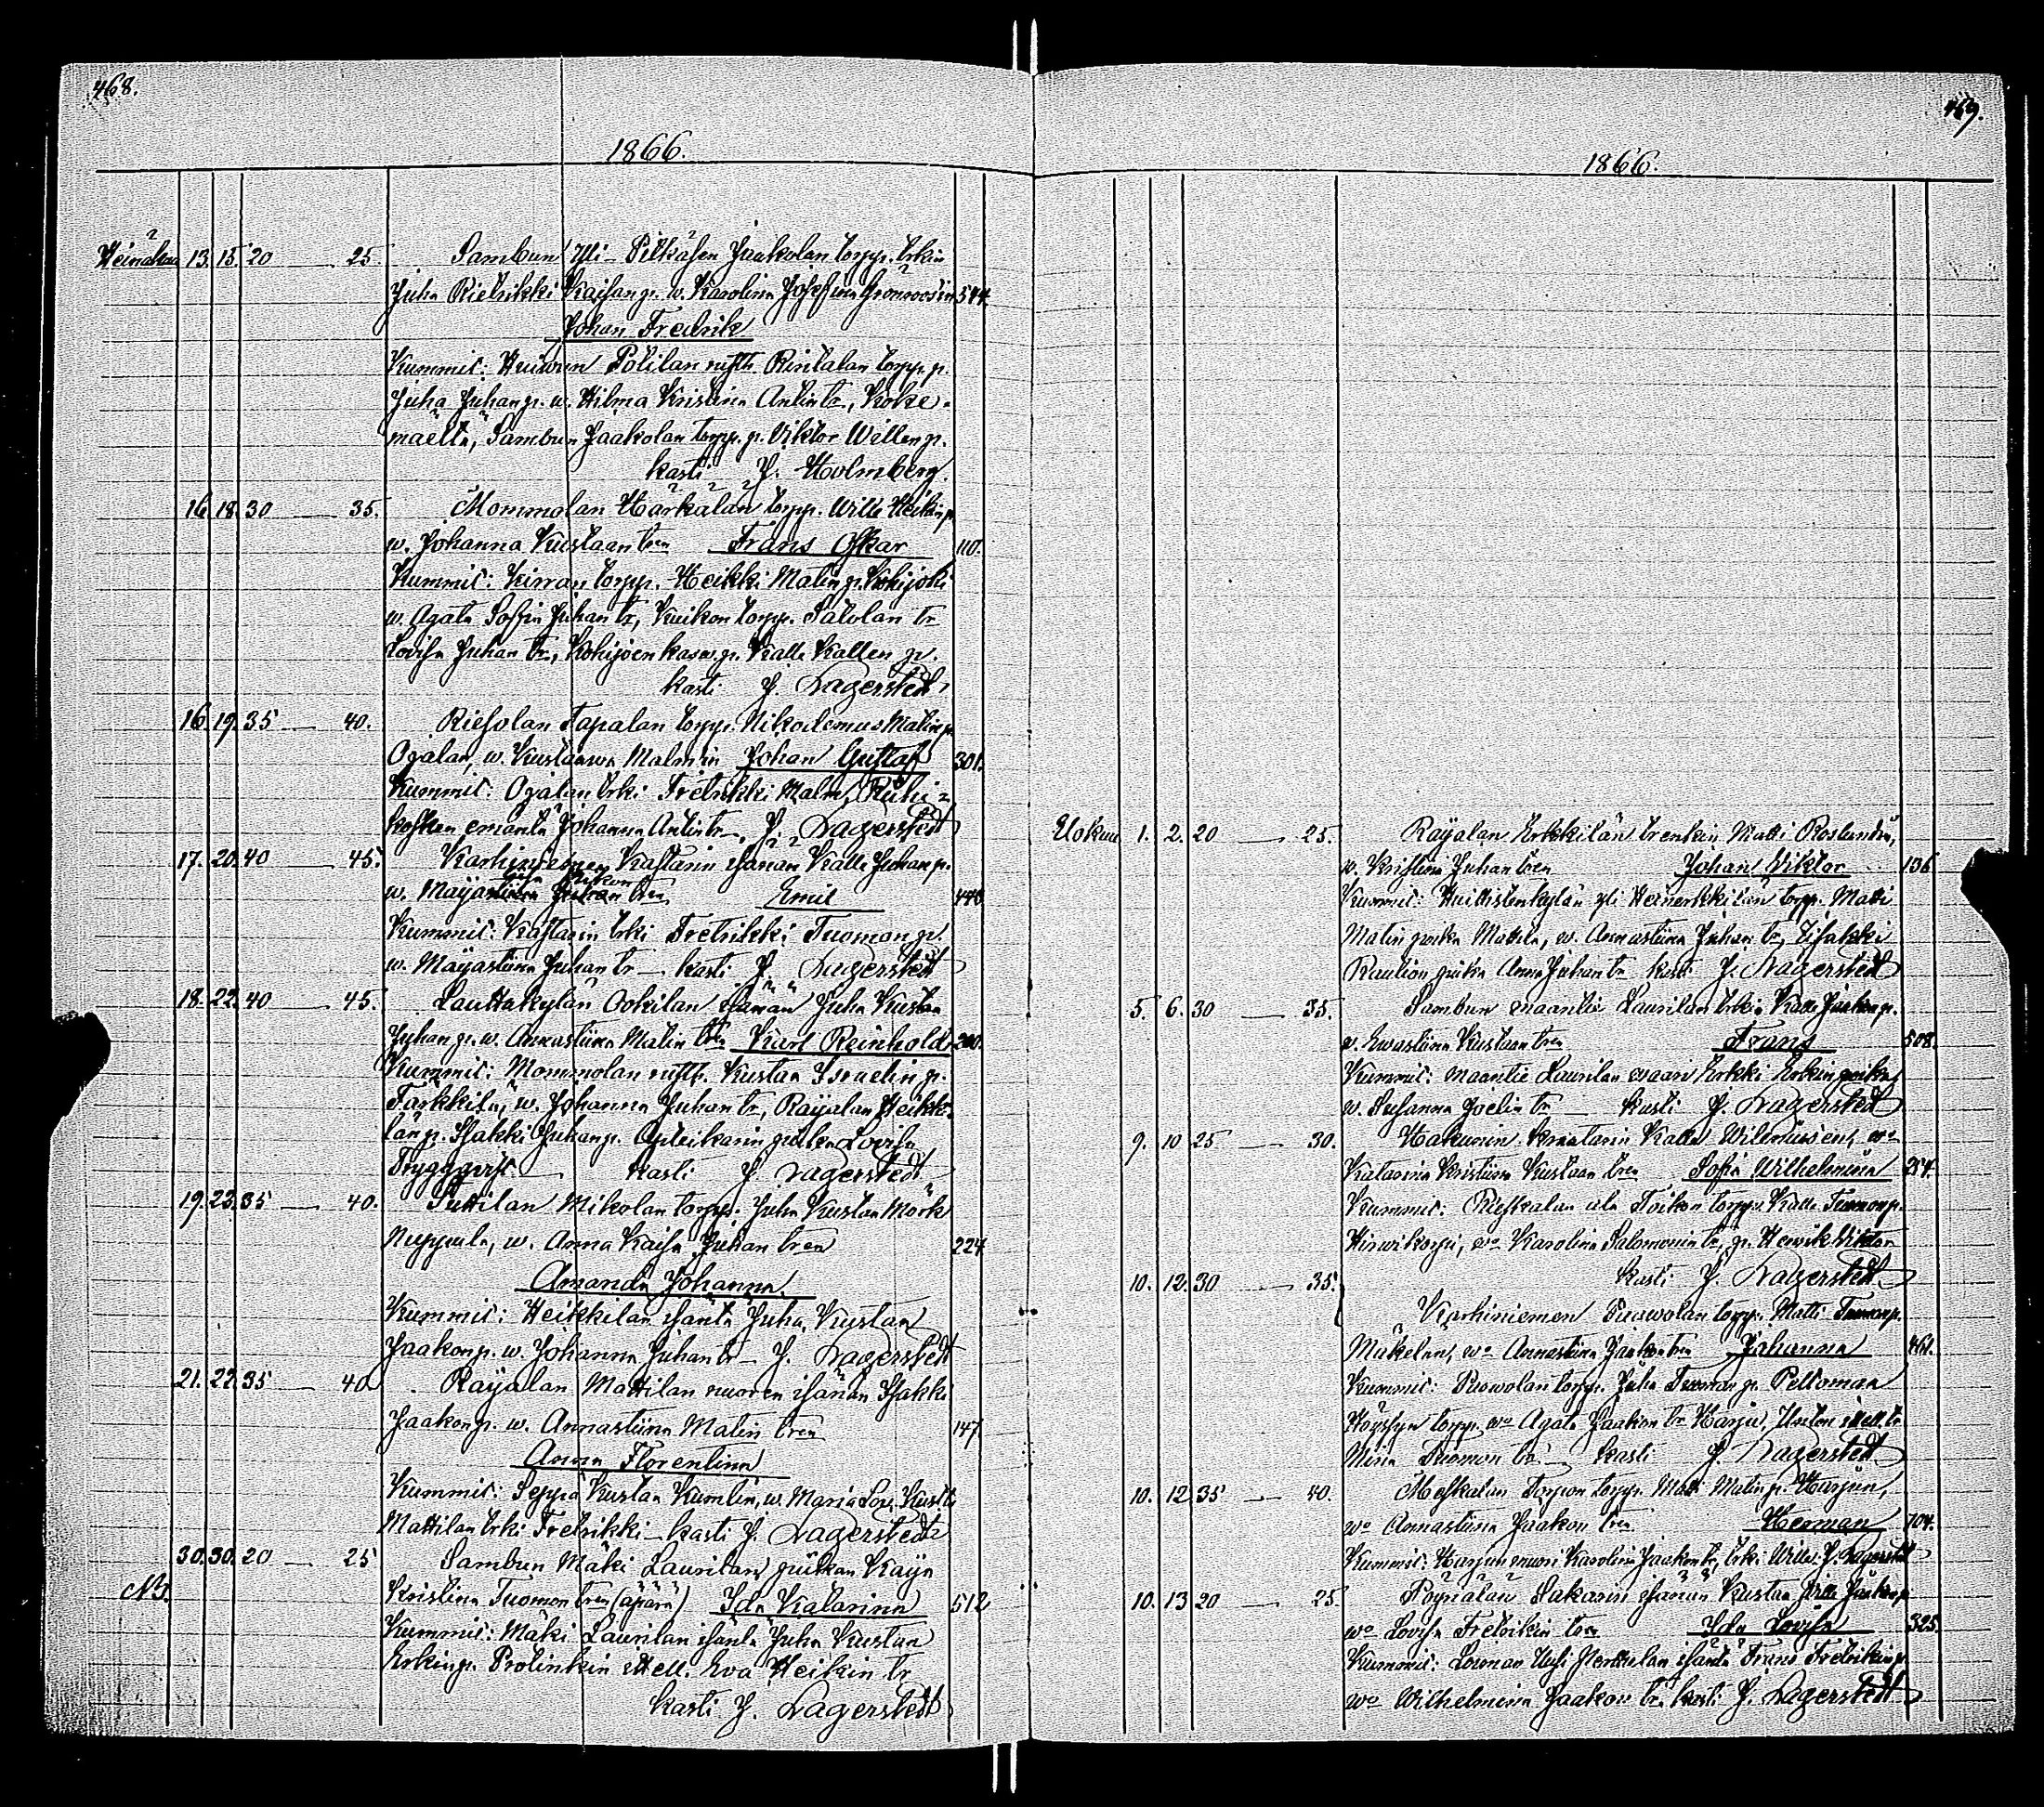 468.
1866.
Heinäkuu 13. 15. 20 25. Sambun Yli-Pitkäsen Jaakolan torpp. trkin
Juha Rietrikki Kaisan p. w. Karolina Josefiina Grönroosin 544.
Johan Fredrik
Kummit: Potilan Rintalan torpp. p.
Juha Juhan p. w. Hilma Kristina Antin tr, Koke-
mäeltä, Sambun Jaakolan torpp. p. Viktor Willen p.
kasti J. Holmberg.
16. 18. 30 35. Mommolan Härkälän torpp. Wille Heikin p.
w. Johanna Kustaan tren Frans Oskar 110.
Kummit: torpp. Heikki Matin p. Kohijoki
w. Agata Sofia Juhan tr, Kuikon torpp. Salolan tr
Lovisa Juhan tr, Kohijoen kasw. p. Kalle Kallen p.
kasti J. Lagerstedt
16. 19. 35 40. Riesolan Tapalan torpp. Nikodemus Matin p.
Ojalan, w. Kustaawa Malmin Johan Gustaf 301.
Kummit: Ojalan trki Fretrikki Malm,
kosken emäntä Johanna Antin tr, J. Lagerstedt
17. 20. 40 45. Karhiniemen Kastarin isännän Kalle Juhan p.
w. Maija Juhan tren Emil 440.
Kummit: Kastarin trki Fretrikki Tuomon p.
w. Maijastiina Juhan tr kasti J. Lagerstedt
18. 22. 40 45. Lauttakylän Ookilan isännän Juha Kustaa
Juhan p. w. Annastiina Matin tren Karl Reinhold 200.
Kummit: Mommolan Kustaa Israelin p.
Tarkkila, w. Johanna Juhan tr, Raijalan Heikki-
län p. Isakki Juhan p. Apteikarin piika Lovisa
Tryggqvist kasti J. Lagerstedt
19. 23. 35 40. Suttilan Mikolan torpp. Juha Kustaa Mörk
Nuppula, w. Anna Kaisa Juhan tren 224.
Amanda Johanna.
Kummit: Heikkilän isäntä Juha Kustaa
Jaakon p. w. Johanna Juhan tr J. Lagerstedt
21. 22. 35 40 Raijalan Mattilan nuoren isännän Isakki
Jaakon p. w. Annastiina Matin tren 147
Anna Florentina
Kummit: Seppä Kustaa Kumlin, w. Maria Lov. Kust.
Mattilan trki Fretrikki kasti J. Lagerstedt
30. 30. 20 25 Sambun Mäki Laurilan piikan Kaija
Kristina Tuomon tren (äpärä) Ida Katarina 512
Kummit: Mäki Laurilan isäntä Juha Kustaa
Erkin p. Prötinkin itsell. Eva Heikin tr
kasti J. Lagerstedt
469.
1866.
Elokuu 1. 2. 20 25. Raijalan Erkkilän trenkin Matti Roslundin,
w. Kristina Juhan tren Johan Viktor 136
Kummit: Huittistenkylän yli Heinerkkilän torpp. Matti
Matin poika Mattila, w. Annastiina Juhan tr, Isakki
Raulion piika Anna Juhan tr kasti J. Lagerstedt
5. 6. 30 35. Sambun maantie Laurilan trkin Kalle Jaakon p.
w. Ewastiina Kustaan tren Frans 508.
Kummit: maantie Laurilan waari Erkki Erkin poika
w. Susanna Joelin tr kasti J. Lagerstedt
9. 10 25 30. Hakunin Kalle Wileniusen, wo
Katariina Kristiina Kustaan tren Sofia Wilhelmiina 254.
Kummit: Rieskalan ala Toikon torpp. Kalle Tuomon p.
Hirwikorpi, wo Karolina Salomonin tr, p. Henrik Viktor
kasti J. Lagerstedt
10. 12. 30 35. Karhiniemen torpp. Matti Tuomon p.
Mäkelän, wo Annastiina Jaakon tren Johanna 461.
Kummit: torpp. Juha Tuomon p. Peltoman
torpp. wo Agata Jaakon tr Harju, itsell. tr
Miina Tuomon tr kasti J. Lagerstedt
10. 12 35 40. Meskalan torpp. Matti Matin p. Harjun,
wo Annastiina Jaakon tren Herman 704.
Kummit: Harjun muori Karolina Jaakon tr, trki Wille J. Lagerstedt
10. 13 20 25. Pöyriälän Sakarin isännän Kustaa Wille Jaakon p.
wo Lovisa Fretrikin tren Ida Lovisa 325.
Kummit: Loiman Uusi isäntä Frans Fretrikin p.
wo Wilhelmina Jaakon tr. kasti J. Lagerstedt